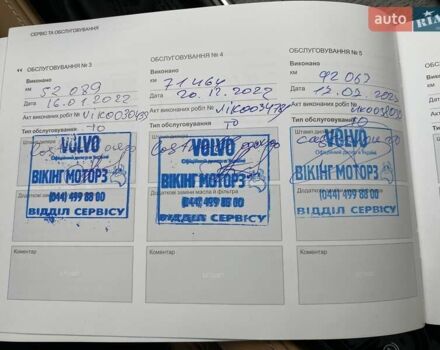 auto RIA
СЕРВІС ТА ОБСЛУГОВУВАННЯ
ОБСЛУГОВУВАННЯ № 3
Виконано
км 52 089
Дата 16.01.2022
Акт виконаних робіт №
Тип обслуговування
ТО
Штамп дилера
VOLVO
Офіційний дилер в Україні
ВІКІНГ МОТОРЗ
(044) 499 88 00
ВІДДІЛ СЕРВІСУ
Коментар
ОБСЛУГОВУВАННЯ № 4
Виконано
км 71 464
Дата 20.12.2022
Акт виконаних робіт №
Тип обслуговування
ТО
Штамп дилера
VOLVO
Офіційний дилер в Україні
ВІКІНГ МОТОРЗ
Додаткові заміни масла й фільтра
(044) 499 88 00
ВІДДІЛ СЕРВІСУ
Коментар
ОБСЛУГОВУВАННЯ № 5
Виконано
км 92 067
Дата
Акт виконаних робіт №
Тип обслуговування
ТО
Штамп дилера
VOLVO
Офіційний дилер в Україні
ВІКІНГ МОТОРЗ
(044) 499 88 00
ВІДДІЛ СЕРВІСУ
Коментар